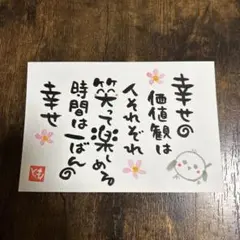 幸せの
価値観は
人それぞれ
笑って楽しめる
時間は一ばんの
幸せ